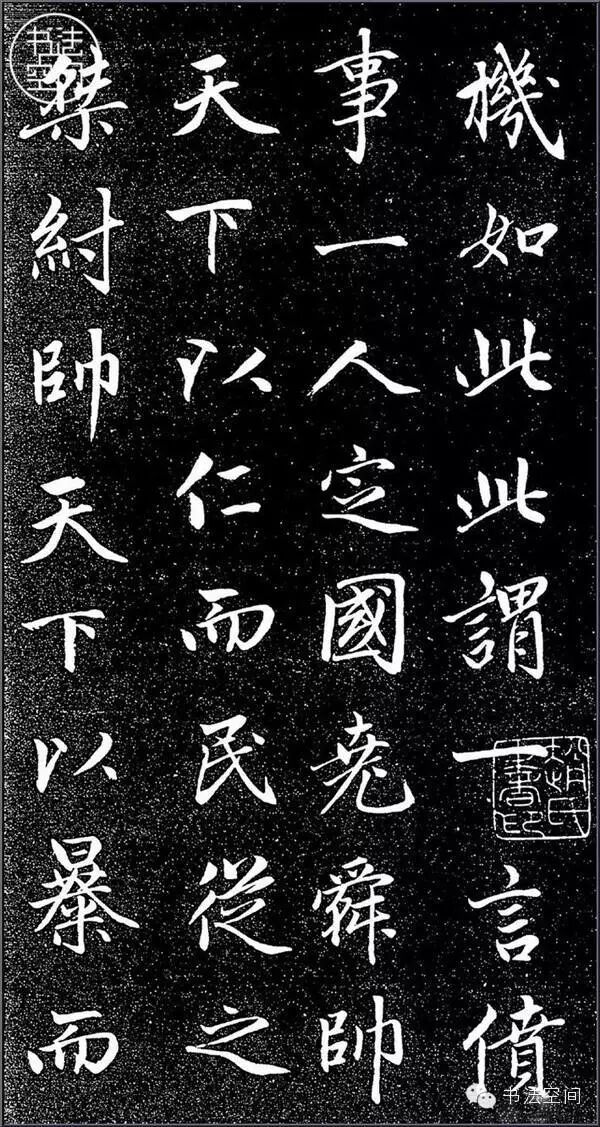 機如此此謂一言僨
事一人定國堯舜帥
天下以仁而民從之
桀紂帥天下以暴而
趙氏書印
书法空间
书法空间